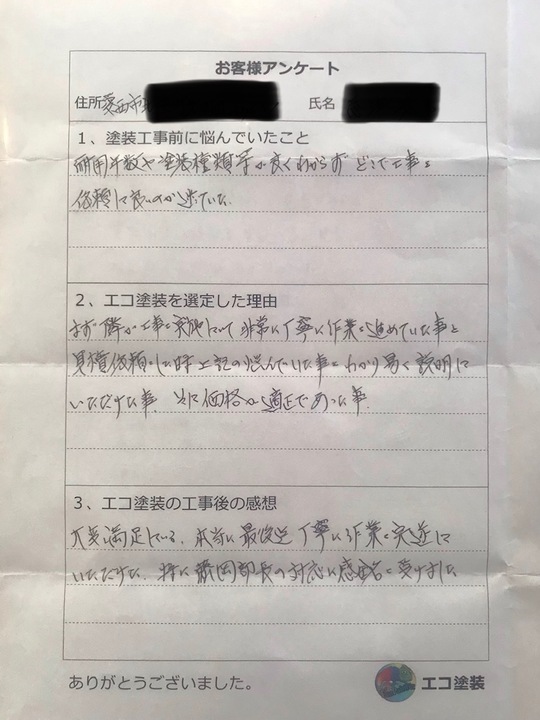 お客様アンケート
住所 愛西市 氏名
1、塗装工事前に悩んでいたこと
耐用年数や塗装種類等が良くわからず どこで工事を
依頼して良いのか迷っていた
2、エコ塗装を選定した理由
まず隣が工事を実施していて 非常に丁寧に作業を進めていた事と
見積依頼した時上記の悩んでいた事をわかり易く説明して
いただけた事、次に価格が適正であった事
3、エコ塗装の工事後の感想
大変満足している、本当に最後迄 丁寧に作業を完遂して
いただけた、特に 岡部長の対応に感銘を受けました
ありがとうございました。
エコ塗装